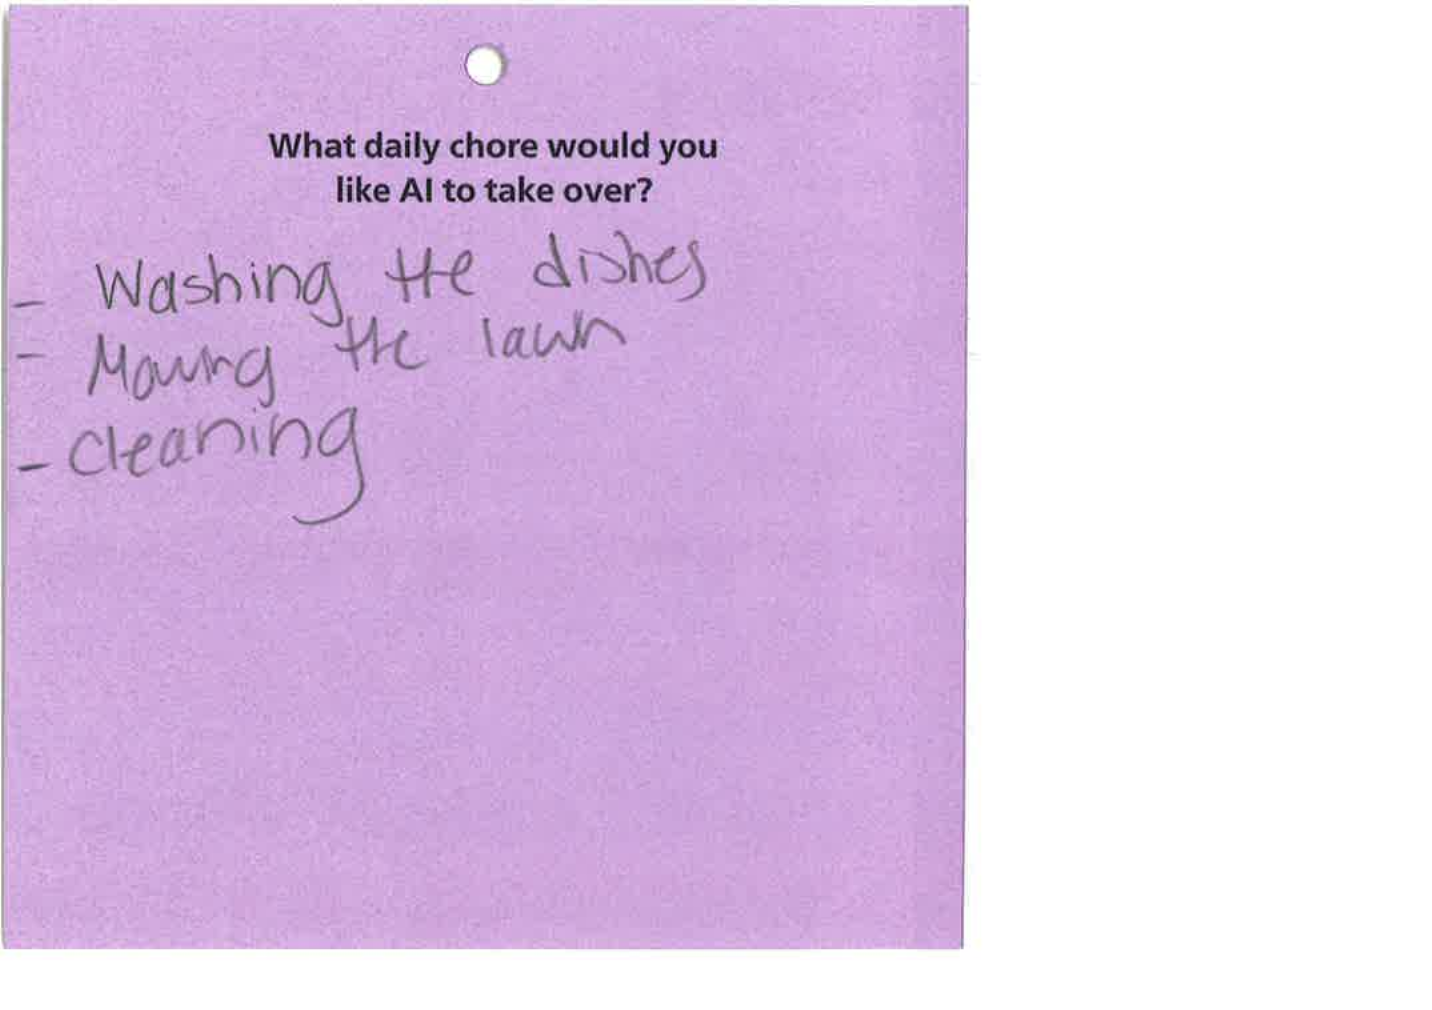 What daily chore would you
like AI to take over?
- Washing the dishes
- Mowing the lawn
- cleaning